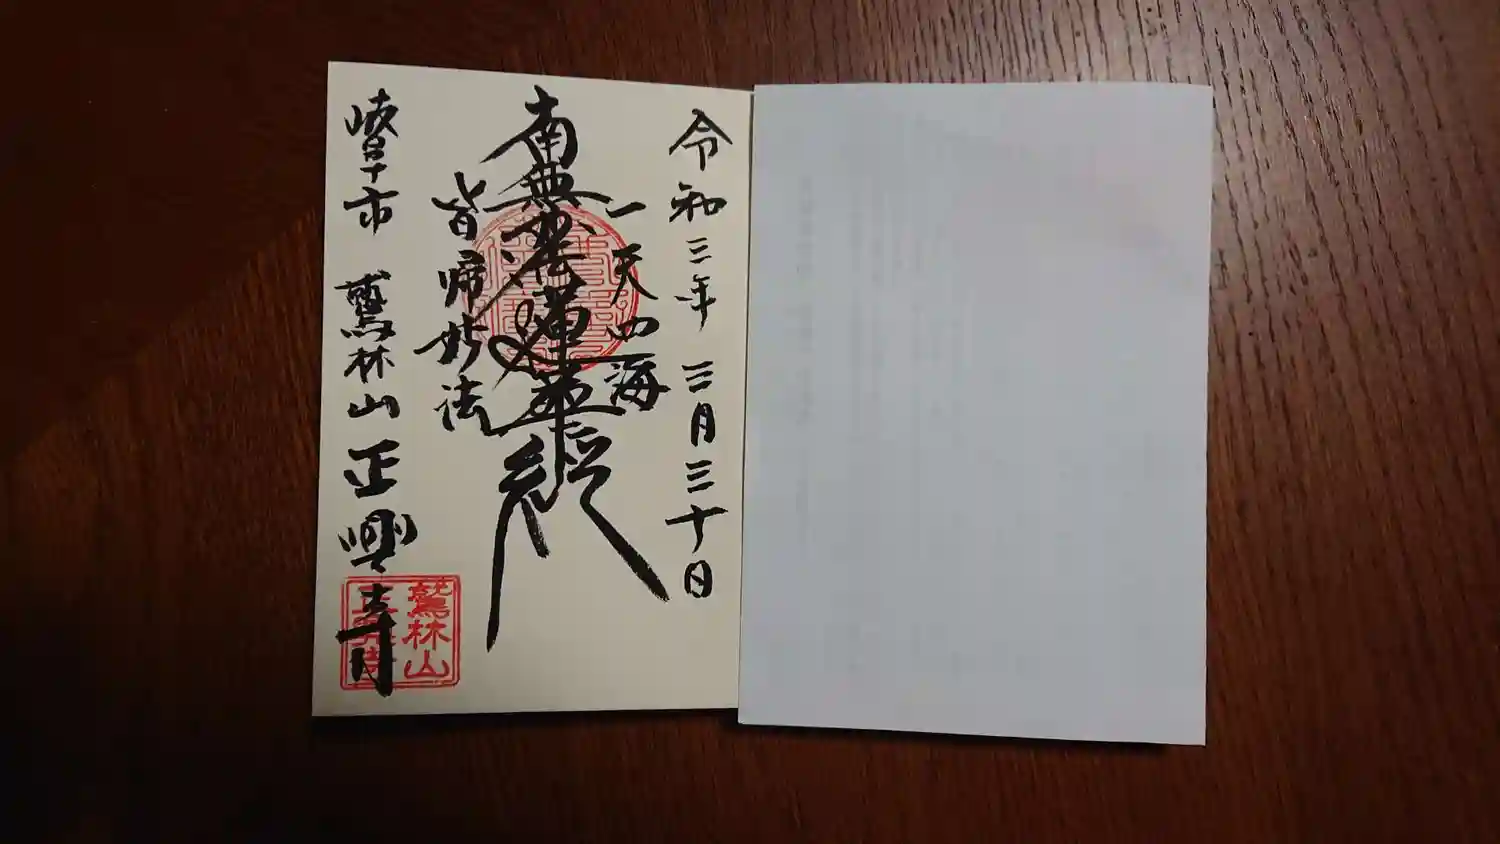 令和三年 三月三十日
一天四海
南無妙法蓮華経
皆帰妙法
岐阜市 鷲林山 正興寺
鷲林山
正興寺